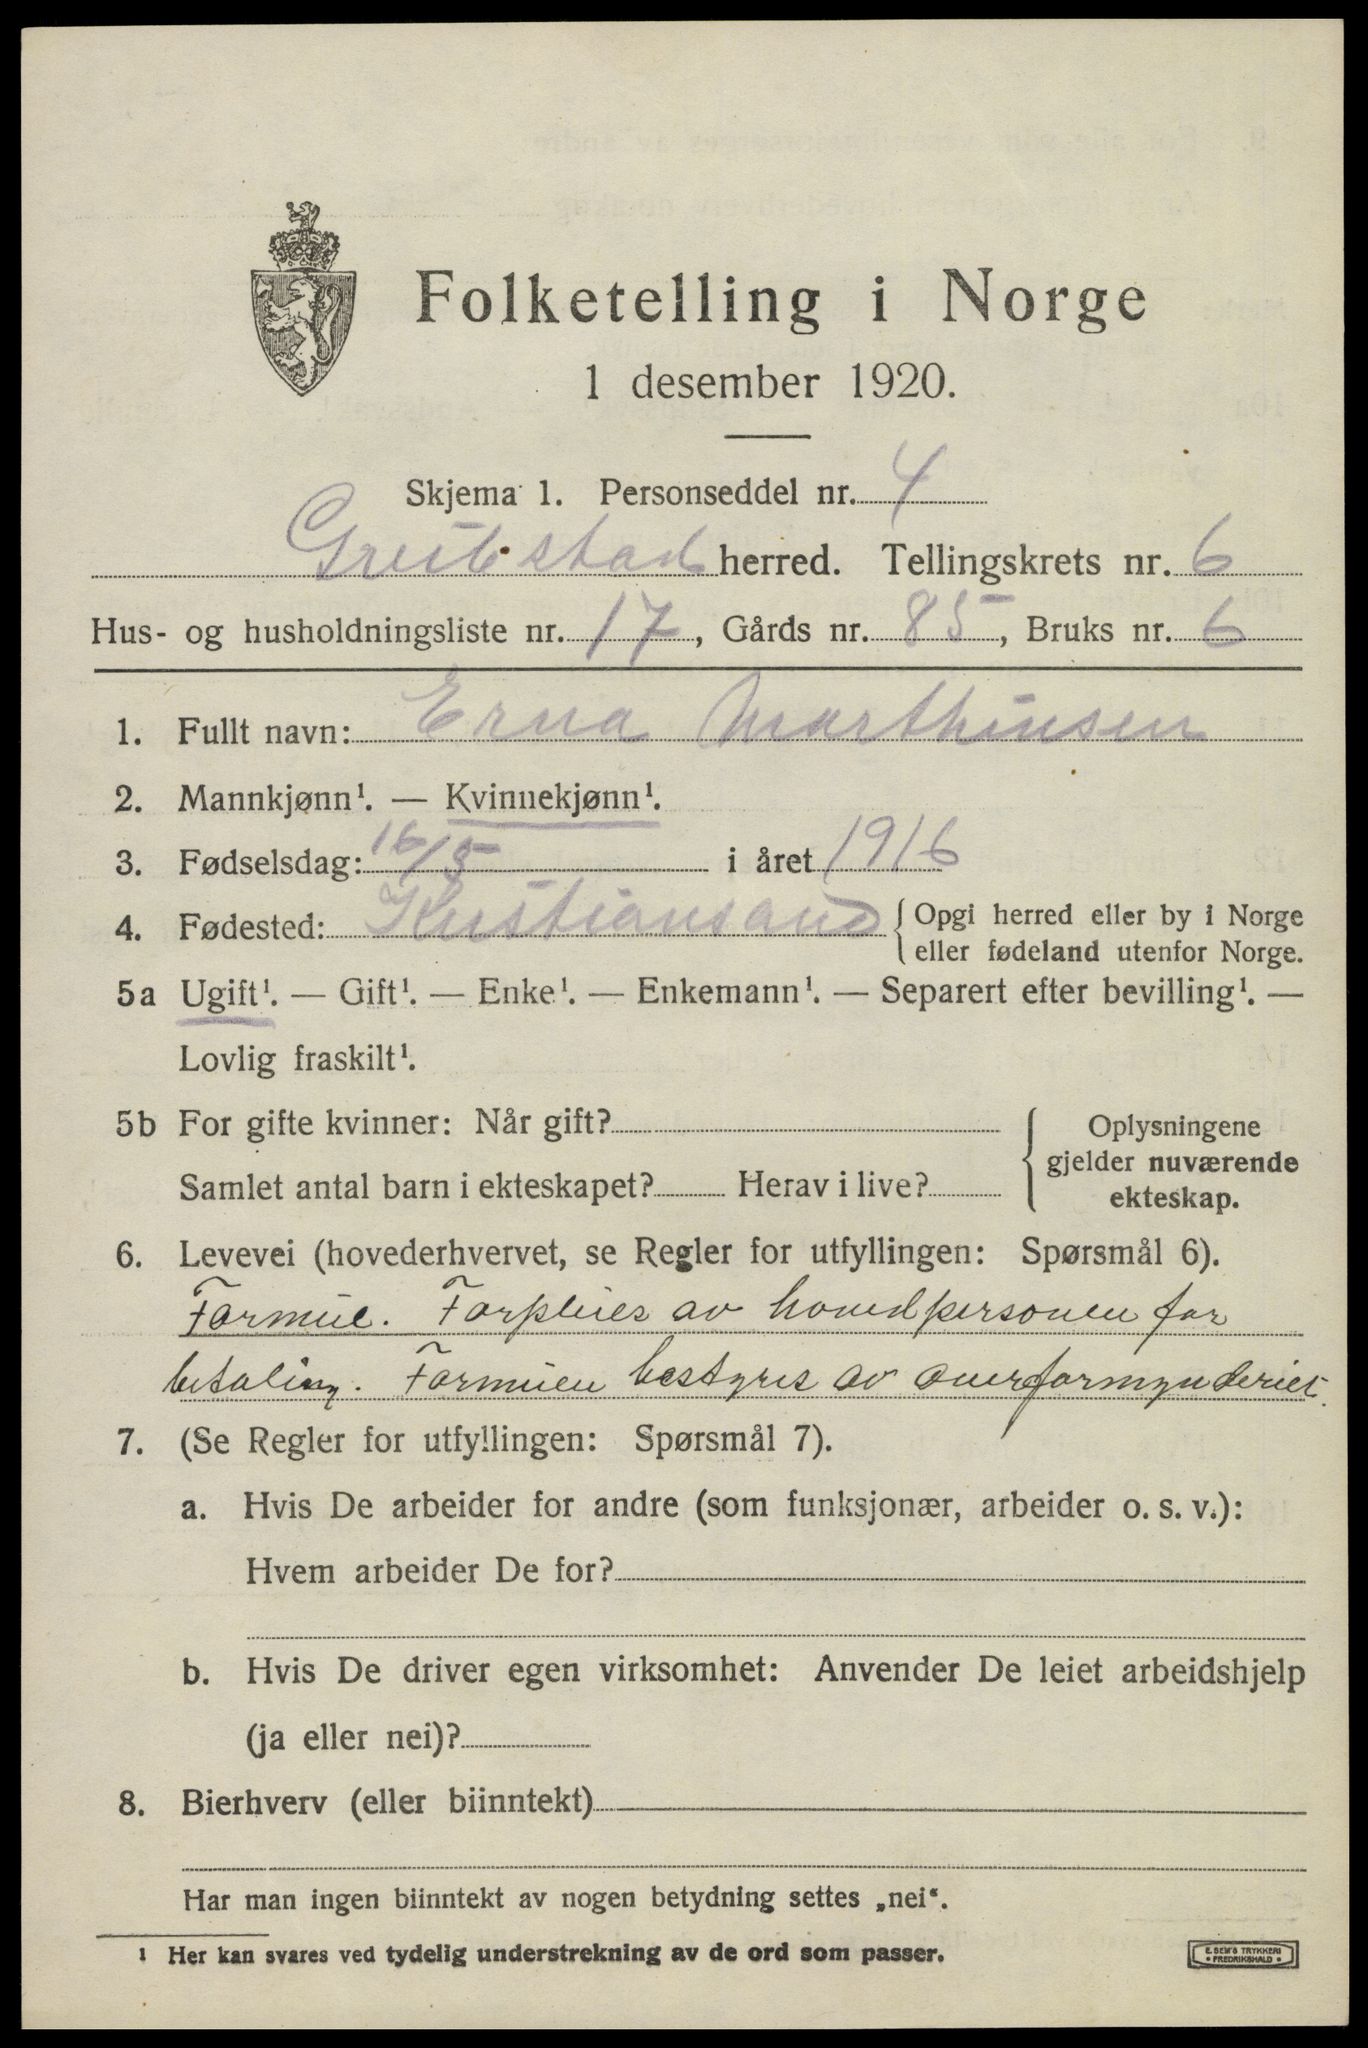 Folketelling i Norge
1 desember 1920.
Skjema 1. Personseddel nr. 4
Greibstad herred. Tellingskrets nr. 6
Hus- og husholdningsliste nr. 17, Gårds nr. 85, Bruks nr. 6
1. Fullt navn: Erna Marthinsen
2. Mannkjønn¹. — Kvinnekjønn¹.
3. Fødselsdag: 16/5 i året 1916
4. Fødested: Kristiansand { Opgi herred eller by i Norge
eller fødeland utenfor Norge.
5a Ugift¹. — Gift¹. — Enke¹. — Enkemann¹. — Separert efter bevilling¹. —
Lovlig fraskilt¹.
5b For gifte kvinner: Når gift?
Samlet antal barn i ekteskapet? Herav i live?
{ Oplysningene
gjelder nuværende
ekteskap.
6. Levevei (hovederhvervet, se Regler for utfyllingen: Spørsmål 6).
Formue. Forpleies av hovedpersonen for
betaling. Formuen bestyres av overformynderiet.
7. (Se Regler for utfyllingen: Spørsmål 7).
a. Hvis De arbeider for andre (som funksjonær, arbeider o. s. v.):
Hvem arbeider De for?
b. Hvis De driver egen virksomhet: Anvender De leiet arbeidshjelp
(ja eller nei)?
8. Bierhverv (eller biinntekt)
Har man ingen biinntekt av nogen betydning settes „nei“.
¹ Her kan svares ved tydelig understrekning av de ord som passer.
E. SEM'S TRYKKERI
• FREDRIKSHALD •